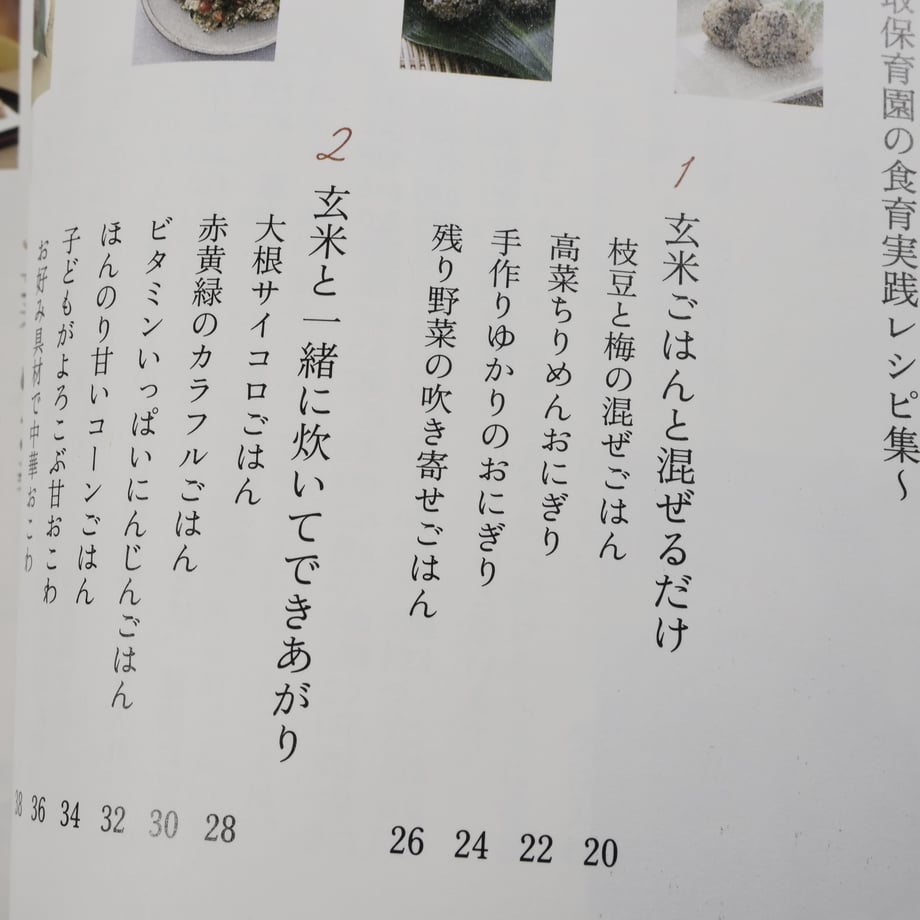 保育園の食育実践レシピ集～
1
玄米ごはんと混ぜるだけ
枝豆と梅の混ぜごはん 20
高菜ちりめんおにぎり 22
手作りゆかりのおにぎり 24
残り野菜の吹き寄せごはん 26
2
玄米と一緒に炊いてできあがり
大根サイコロごはん 28
赤黄緑のカラフルごはん 30
ビタミンいっぱいにんじんごはん 32
ほんのり甘いコーンごはん 34
子どもがよろこぶ甘おこわ 36
お好み具材で中華おこわ 38